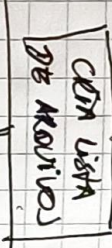 CRIA LISTA
DE ARQUIVOS